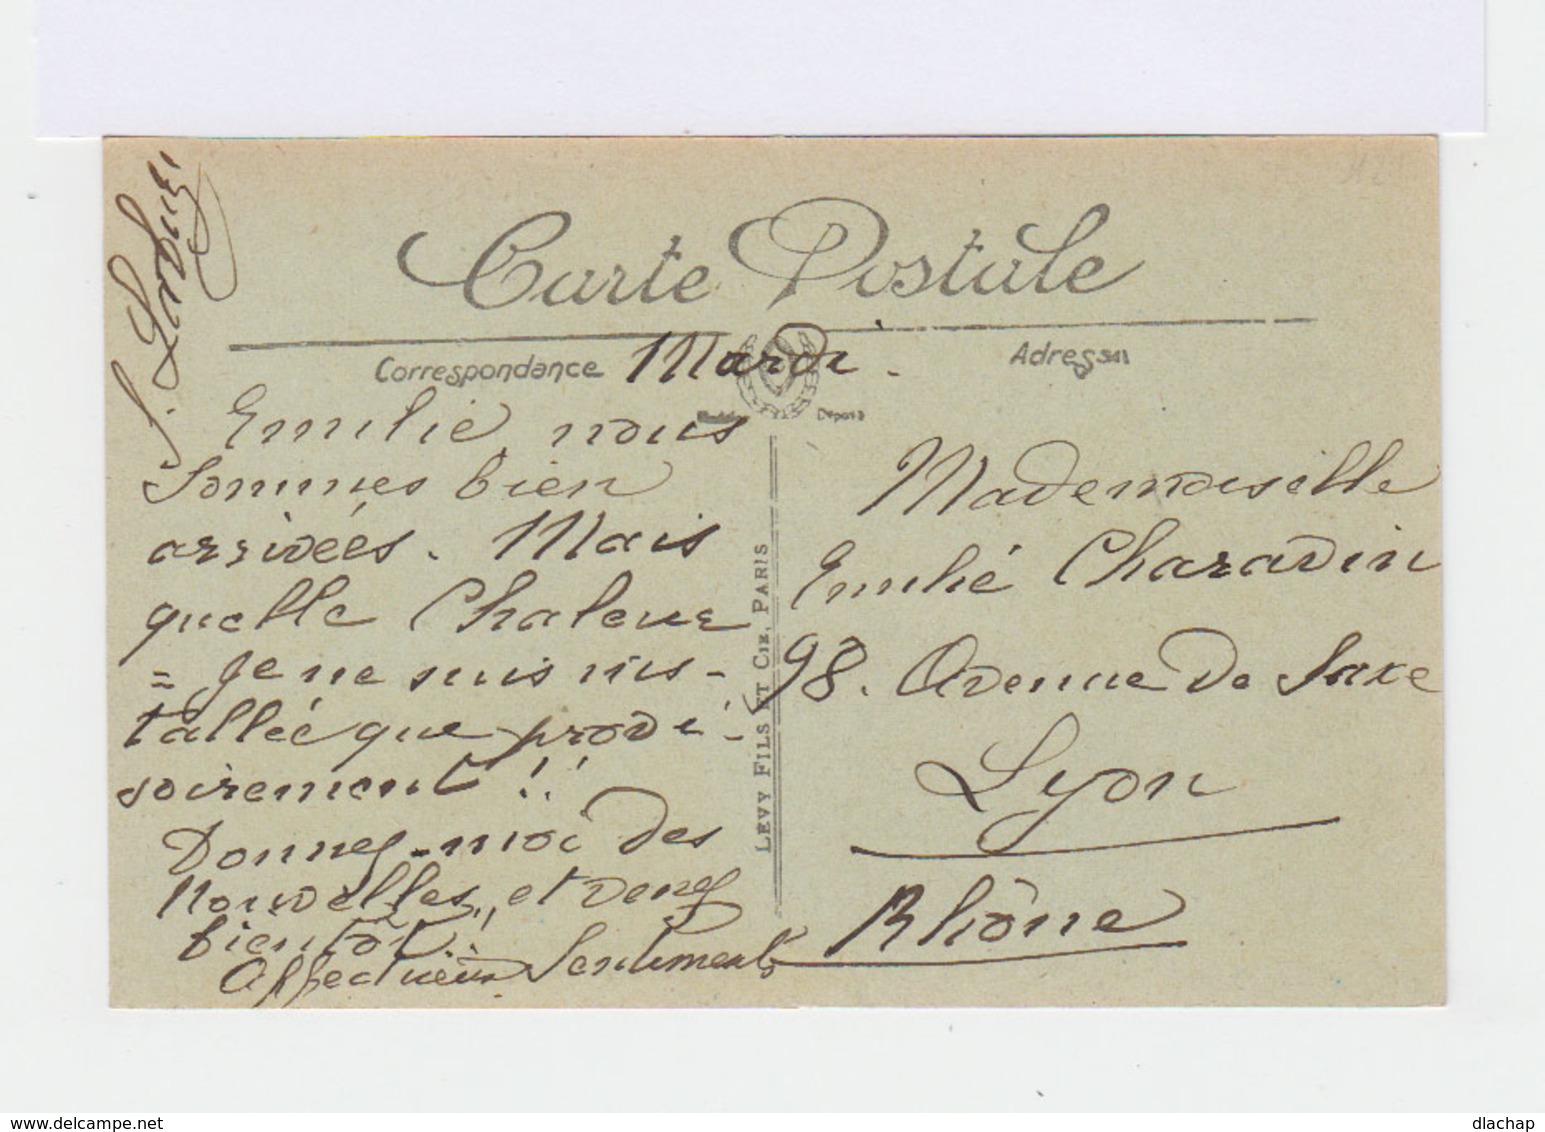 Carte Postale
Correspondance
Mardi.
Adresse
Déposé
Emilie, nous
sommes bien
arrivées. Mais
quelle Chaleur
= Je ne suis ins-
tallée que provi-
soirement !!
Donnez-moi des
nouvelles, et venez
bientôt.
Affectueux Sentiments
Mademoiselle
Emilie Charavin
98. Avenue de Saxe
Lyon
Rhône
LEVY FILS ET CIE, PARIS
delcampe.net
dlachap